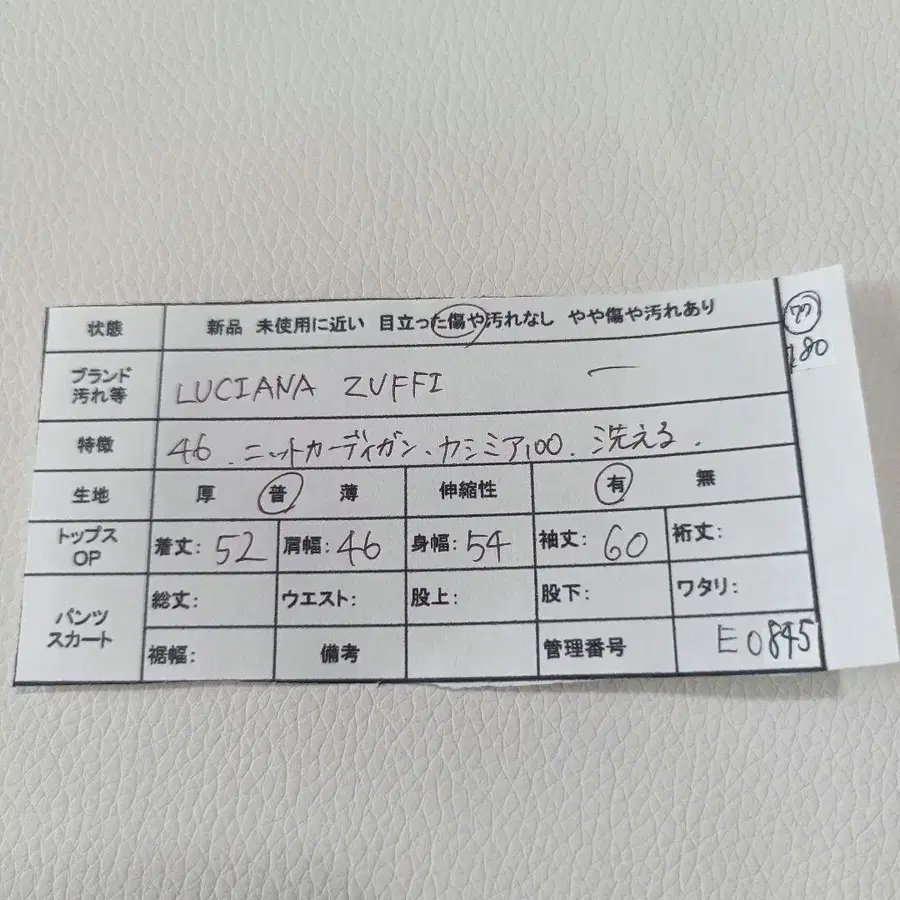 状態 新品 未使用に近い 目立った傷や汚れなし やや傷や汚れあり
ブランド
汚れ等 LUCIANA ZUFFI ー
特徴 46.ニットカーディガン、カシミア100.洗える.
生地 厚 普 薄 伸縮性 有 無
トップス
OP 着丈: 52 肩幅: 46 身幅: 54 袖丈: 60 裄丈:
パンツ
スカート 総丈: ウエスト: 股上: 股下: ワタリ:
裾幅: 備考 管理番号 E0845
80